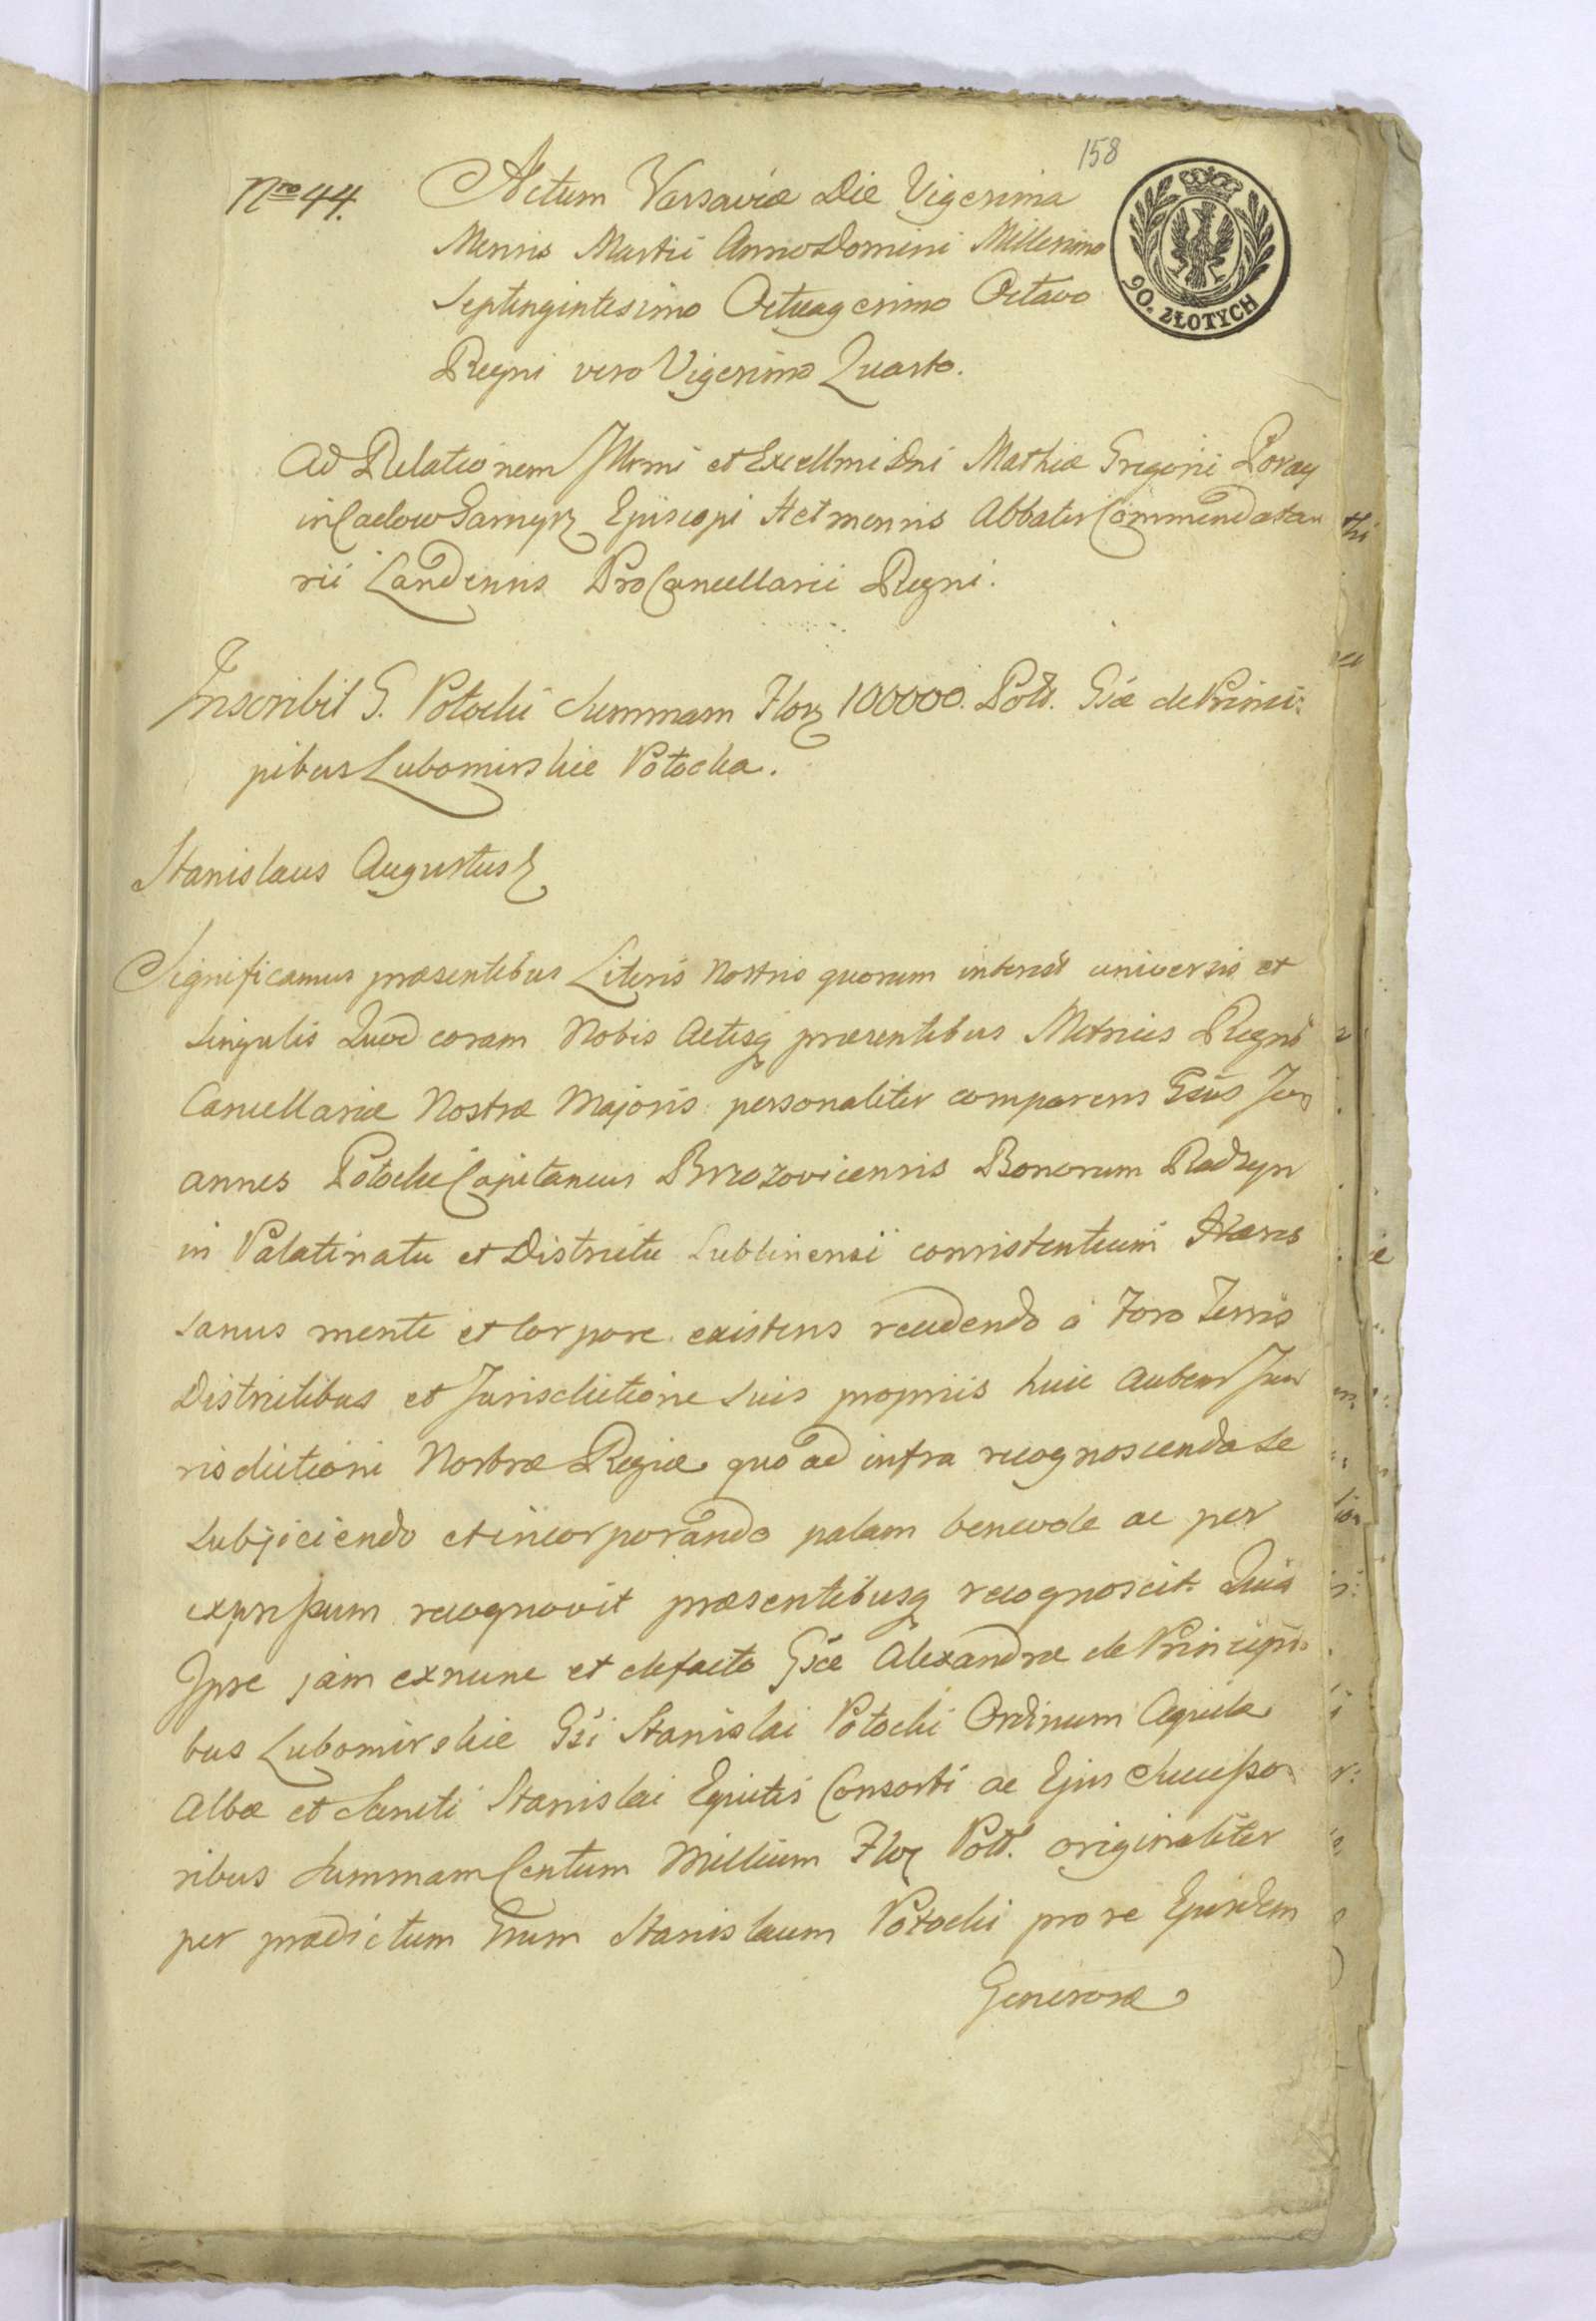 158
Nro 44.
Actum Varsaviæ Die Vigesima
Mensis Martii Anno Domini Millesimo
Septingintesimo Octuagesimo Octavo
Regni vero Vigesimo Quarto.
90. ZŁOTYCH
Ad Relationem Illrmi et Excellmi Dni Mathiæ Gregorii Poray
in Caelow Garnysz Episcopi Helmensis Abbatis Commendata
rii Landensis ProCancellarii Regni.
Inscribit G. Potocki Summam Flor 100000. Poll. Gsæ de Princi:
pibus Lubomirskie Potocka.
Stanislaus Augustus
Significamus præsentibus Literis Nostris quorum interest universis et
Singulis Quod coram Nobis Actisq præsentibus Metrices Regni
Cancellariæ Nostræ Majoris personaliter comparens Gsus Jo
annes Potocki Capitaneus Brzozovicensis Bonorum Radzyn
in Palatinatu et Districtu Lublinensi consistentium Hæres
sanus mente et Corpore existens recedendo a Foro Terris
Districtibus et Jurisdictione suis propriis huic autem Ju
risdictioni Nostræ Regiæ quo ad infra recognoscenda se
subjiciendo et incorporando palam benevole ac per
expressum recognovit præsentibusq recognoscit. Quia
Ipse jam exnunc et defacto Gsæ Alexandræ de Principi
bus Lubomirskie Gsi Stanislai Potocki Ordinum Aquilæ
Albæ et Sancti Stanislai Equitis Consorti ac Ejus Successo
ribus Summam Centum Millium Flor Poll. originaliter
per prædictum Gsum Stanislaum Potocki pro re Ejusdem
Generosæ